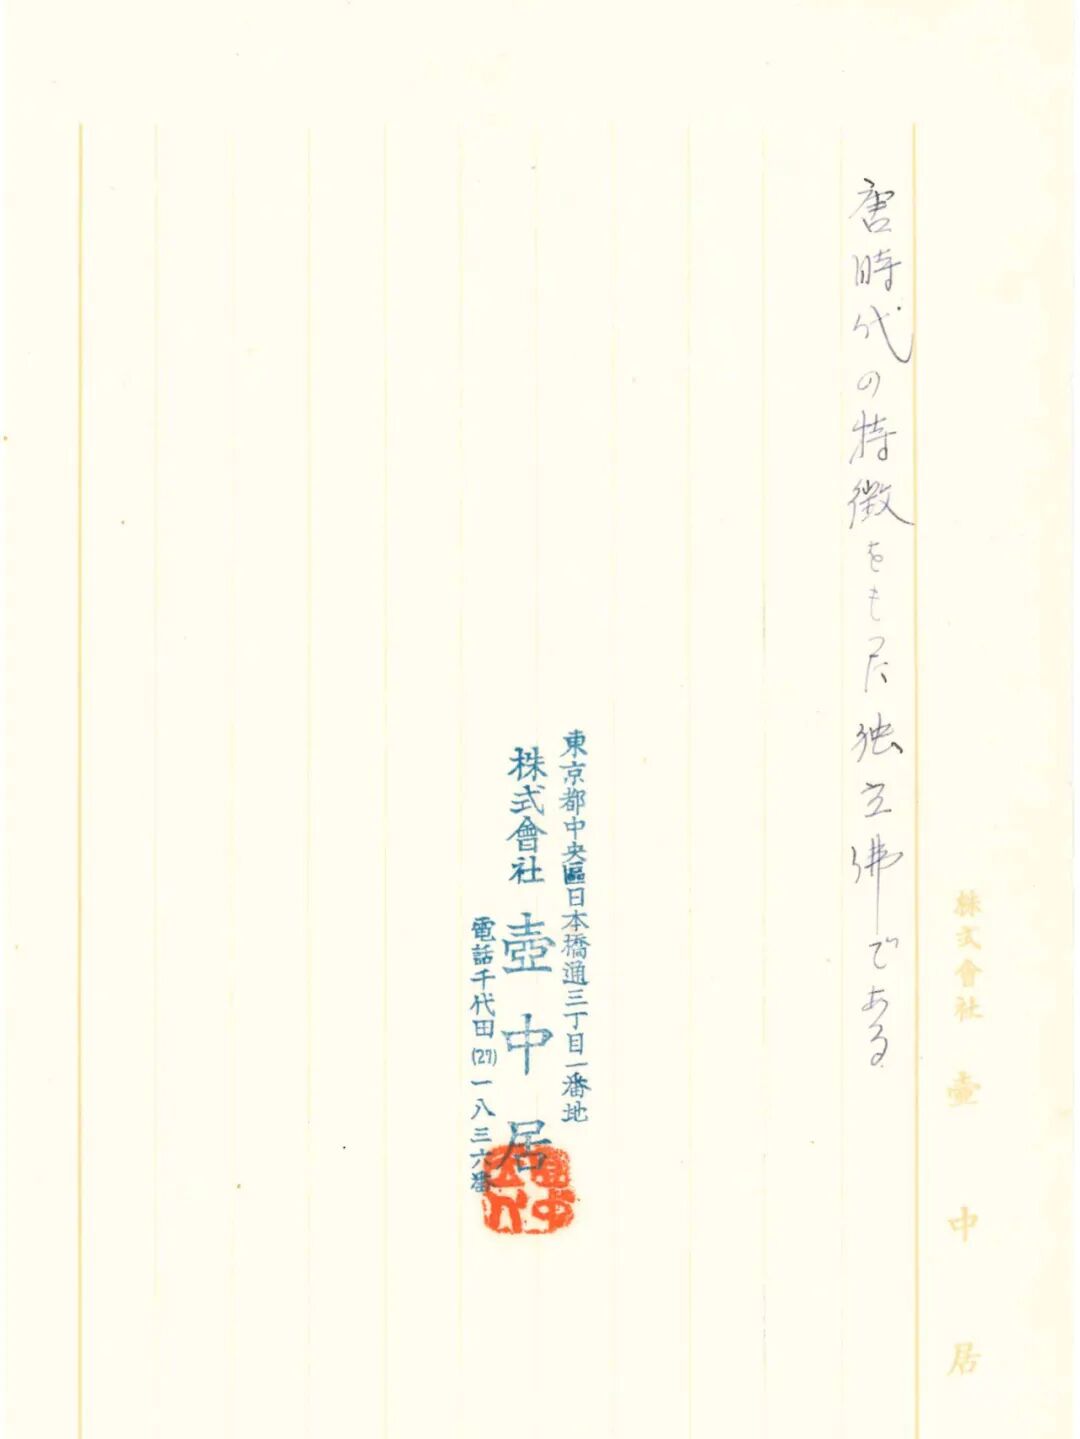 唐時代の特徴をもつた独立佛である
株式會社 壺中居
東京都中央區日本橋通三丁目一番地
株式會社 壺中居
電話千代田(27)一八三六番